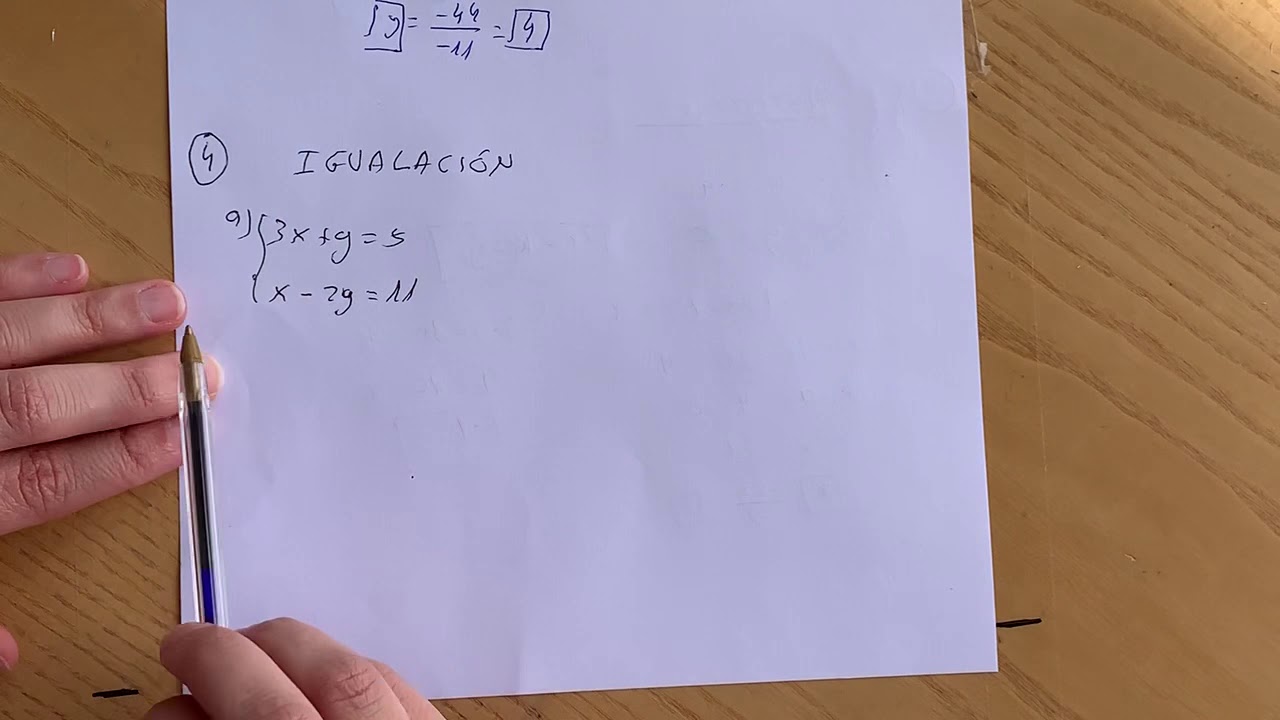 y = -44/-11 = 4
4 IGUALACIÓN
a) 3x + y = 5
x - 2y = 11